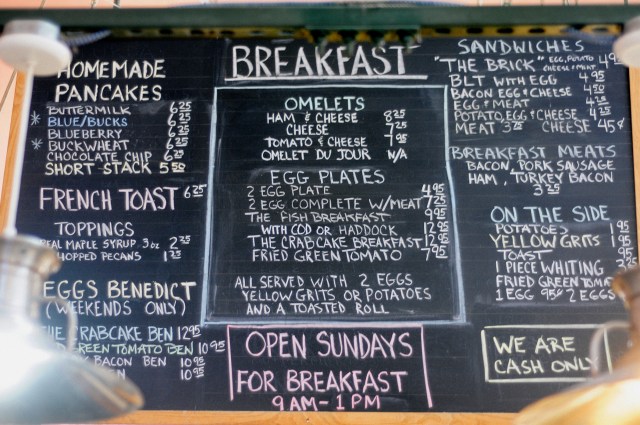 HOMEMADE
PANCAKES
BUTTERMILK 6 25
* BLUE/BUCKS 6 25
BLUEBERRY 6 25
* BUCKWHEAT 6 25
CHOCOLATE CHIP 6 25
SHORT STACK 5 50
FRENCH TOAST 6 25
TOPPINGS
REAL MAPLE SYRUP 3oz 2 25
CHOPPED PECANS 1 25
EGGS BENEDICT
(WEEKENDS ONLY)
THE CRABCAKE BEN 12 95
GREEN TOMATO BEN 10 95
BACON BEN 10 95
10 95
BREAKFAST
OMELETS
HAM & CHEESE 8 25
CHEESE 7 25
TOMATO & CHEESE 7 95
OMELET DU JOUR N/A
EGG PLATES
2 EGG PLATE 4 95
2 EGG COMPLETE W/MEAT 7 25
THE FISH BREAKFAST 9 95
WITH COD OR HADDOCK 12 95
THE CRABCAKE BREAKFAST 12 95
FRIED GREEN TOMATO 7 95
ALL SERVED WITH 2 EGGS
YELLOW GRITS OR POTATOES
AND A TOASTED ROLL
OPEN SUNDAYS
FOR BREAKFAST
9 AM - 1 PM
SANDWICHES
"THE BRICK" EGG, POTATO
CHEESE & MEAT
BLT WITH EGG 4 95
BACON EGG & CHEESE
EGG & MEAT
POTATO, EGG & CHEESE
MEAT CHEESE 45¢
BREAKFAST MEATS
BACON, PORK SAUSAGE
HAM, TURKEY BACON
3 25
ON THE SIDE
POTATOES 1 95
YELLOW GRITS 1 95
TOAST
1 PIECE WHITING
FRIED GREEN
1 EGG 95¢ 2 EGGS
WE ARE
CASH ONLY